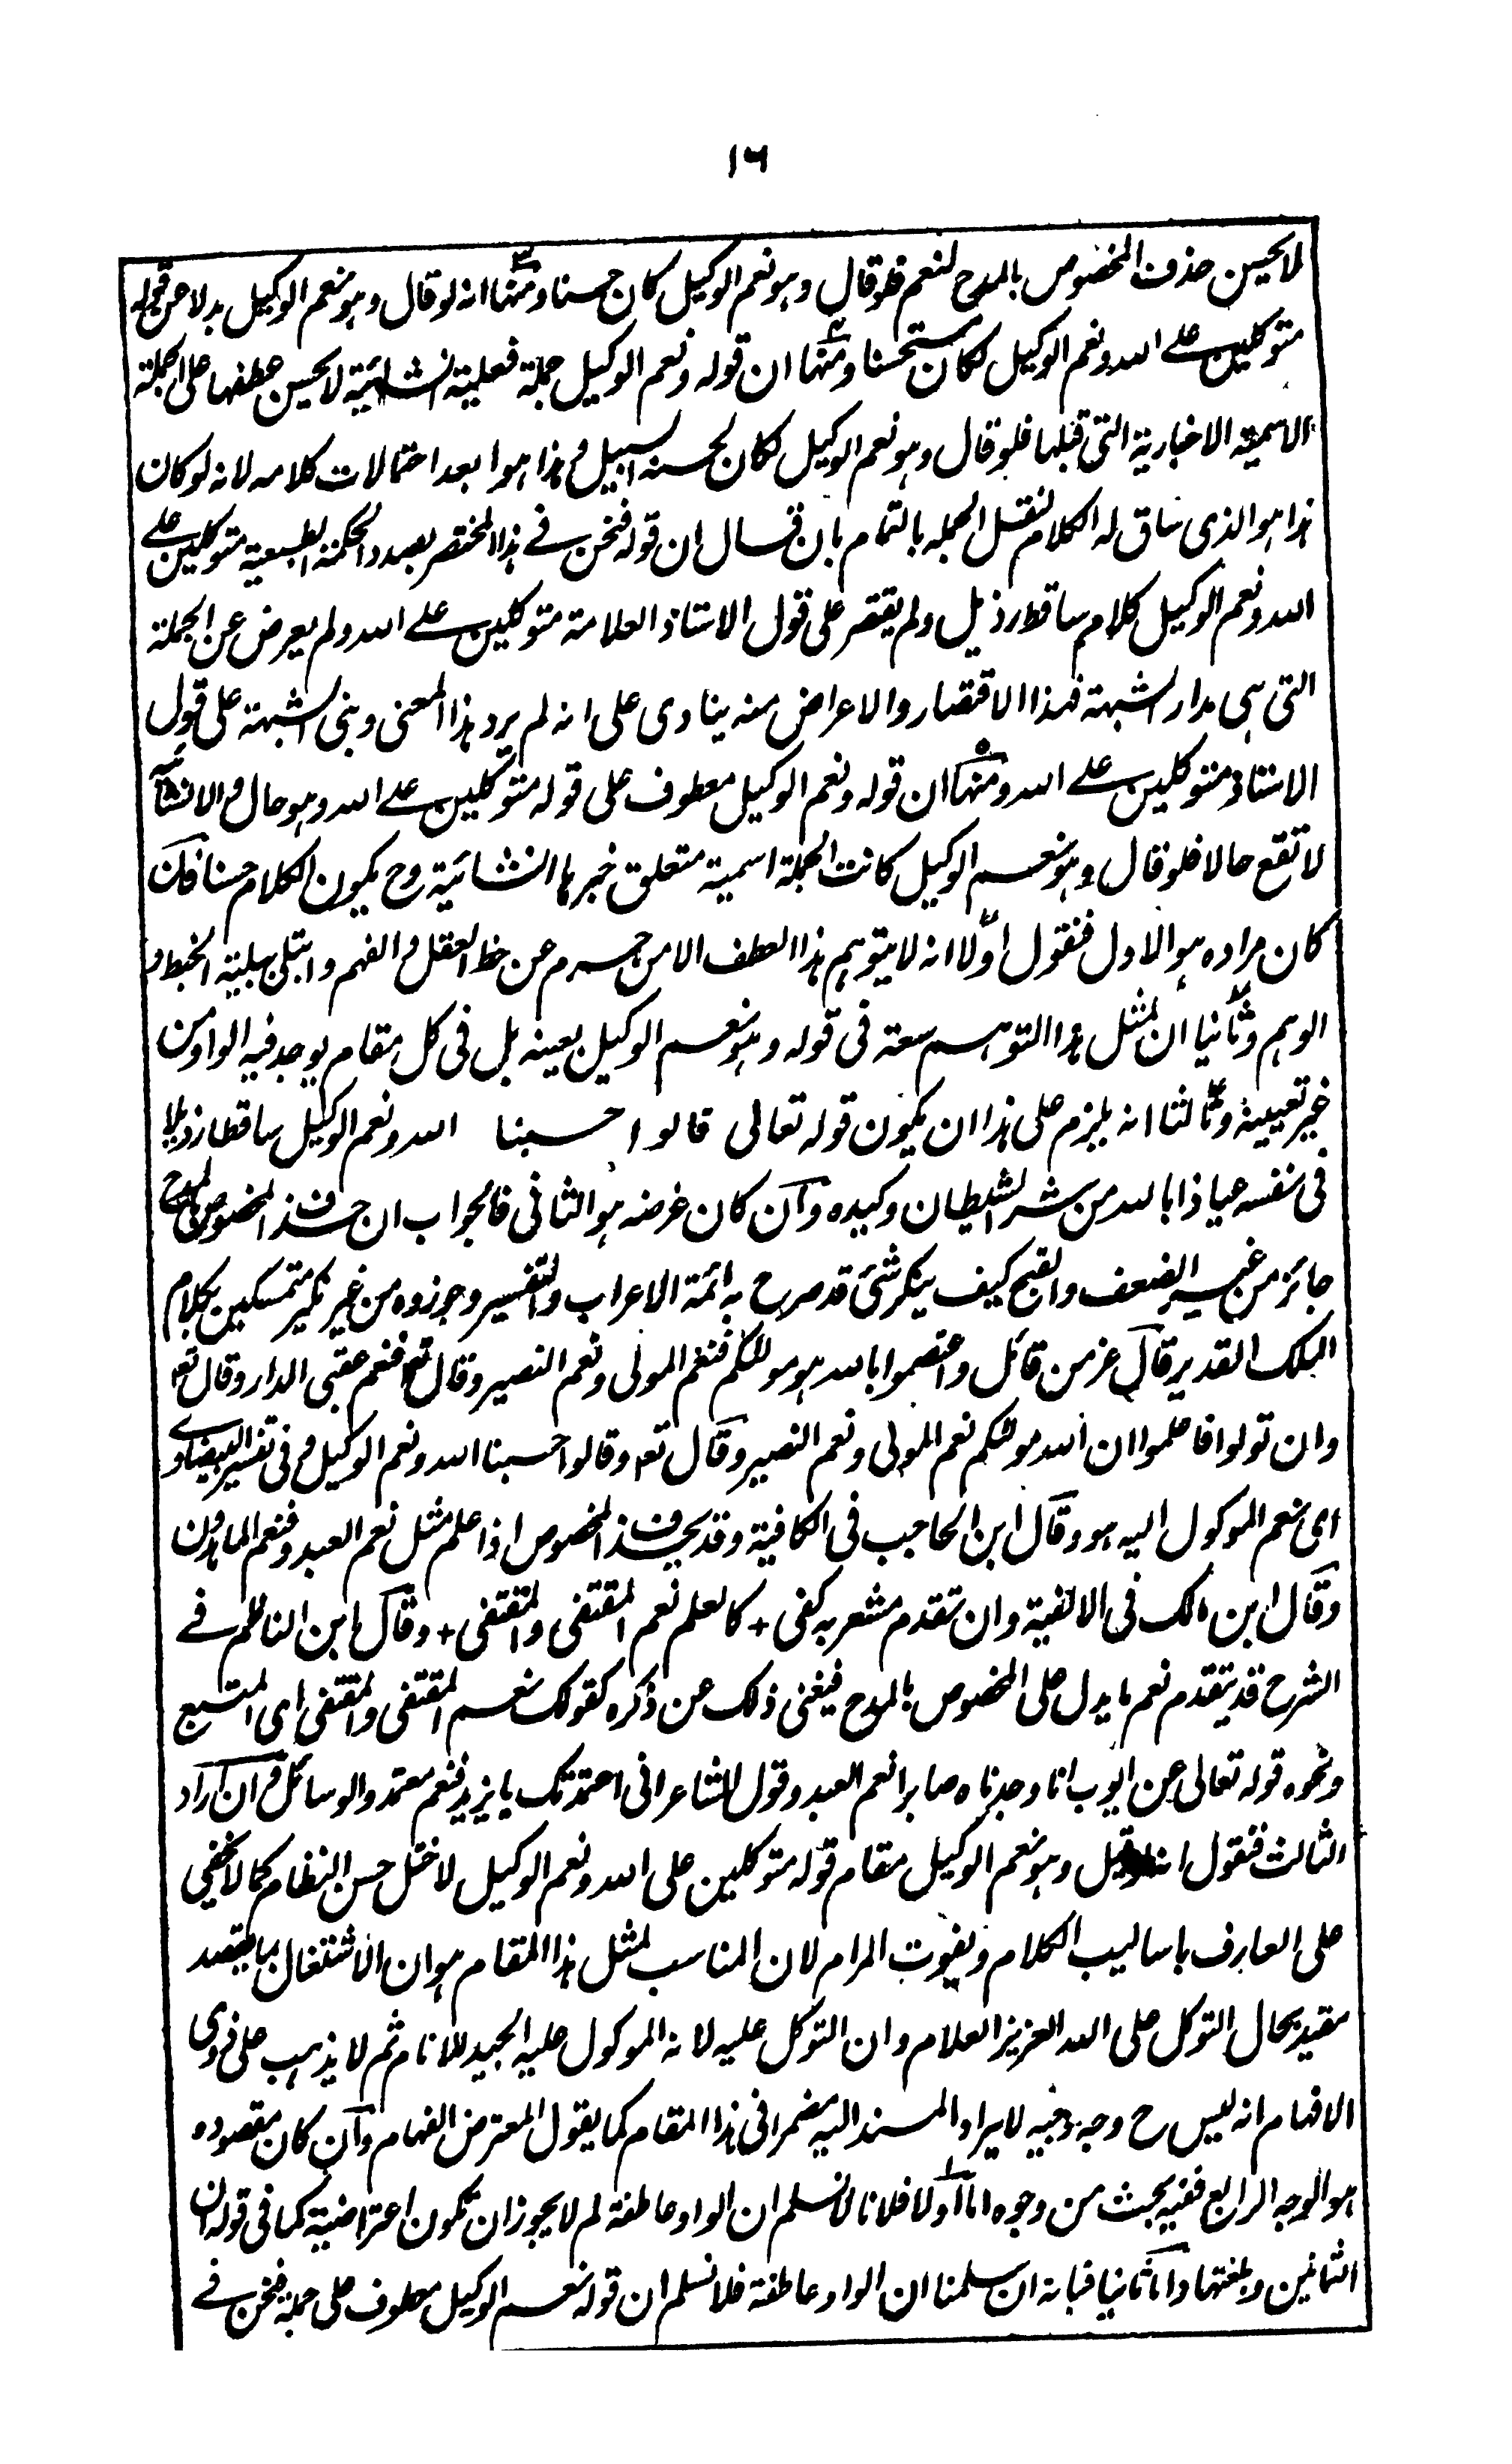 ١٦
لا يحسن حذف المخصوص بالمدح لنعم فلو قال وهو نعم الوكيل كان حسنا ومنها انه لو قال وهو نعم الوكيل بدلا عن قوله
متوكلين على الله ونعم الوكيل لكان مستحسنا ومنها ان قوله ونعم الوكيل جملة فعلية انشائية لا يحسن عطفها على الجملة
الاسمية الاخبارية التي قبلها فلو قال وهو نعم الوكيل لكان لحسنه السبيل وهذا هو ابعد احتمالات كلامه لانه لو كان
هذا هو الذي ساق له الكلام لنقل الجملة بالتمام بان قال ان قوله فنحن في هذا المختصر بصدد الحكمة الطبعية متوكلين على
الله ونعم الوكيل كلام ساقط رذيل ولم يقتصر على قول الاستاذ العلامة متوكلين على الله ولم يعرض عن الجملة
التي هي مدار الشبهة فهذا الاقتصار والاعراض منه ينادي على انه لم يرد هذا المعنى وبنى الشبهة على قول
الاستاذ متوكلين على الله ومنها ان قوله ونعم الوكيل معطوف على قوله متوكلين على الله وهو حال والانشائية
لا تقع حالا فلو قال وهو نعم الوكيل كانت الجملة اسمية متعلق خبرها انشائية وح يكون الكلام حسنا فان
كان مراده هو الاول فنقول اولا انه لا يتوهم هذا العطف الا من حرم عن حظ العقل والفهم وابتلى ببلية الخبط و
الوهم وثانيا ان لمثل هذا التوهم سعة في قوله وهو نعم الوكيل بعينه بل في كل مقام يوجد فيه الواو من
غير تعيينه وثالثا انه يلزم على هذا ان يكون قوله تعالى قالوا حسبنا الله ونعم الوكيل ساقطا رذيلا
في نفسه عياذا بالله من شر الشيطان وكيده وان كان غرضه هو الثاني فالجواب ان حذف المخصوص بالمدح
جائز من غير الضعف والقبح كيف ينكر شئ قد صرح به ائمة الاعراب والتفسير وجوزوه من غير نكير متمسكين بكلام
الملك القدير قال عز من قائل واعتصموا بالله هو مولكم فنعم المولى ونعم النصير وقال تع فنعم عقبى الدار وقال تع
وان تولوا فاعلموا ان الله مولكم نعم المولى ونعم النصير وقال تع وقالوا حسبنا الله ونعم الوكيل وفي تفسير البيضاوي
اى نعم الموكول اليه هو وقال ابن الحاجب في الكافية وقد يحذف المخصوص اذا علم مثل نعم العبد وفنعم الماهدون
وقال ابن مالك في الالفية وان تقدم مشعر به كفى + كالعلم نعم المقتفى والمقتفى + وقال ابن الناظم في
الشرح قد يتقدم نعم ما يدل على المخصوص بالمدح فيغنى ذلك عن ذكره كقولك نعم المقتفى والمقتفى اى المتبع
ونحوه قوله تعالى عن ايوب انا وجدناه صابرا نعم العبد وقول الشاعر انى اعتمدتك يا يزيد فنعم معتمد الوسائل وان اراد
الثالث فنقول انه لو قيل وهو نعم الوكيل مقام قوله متوكلين على الله ونعم الوكيل لاختل حسن النظام كما لا يخفى
على العارف باساليب الكلام ويفوت المرام لان المناسب لمثل هذا المقام هو ان الاشتغال بما يقصد
مقيد بحال التوكل على الله العزيز العلام وان التوكل عليه لانه الموكول عليه المجيد للانام ثم لا يذهب على ذوى
الافهام انه ليس ح وجه وجيه لايراد المسند اليه مضمرا في هذا المقام كما يقول المعترض الفهام وان كان مقصوده
هو الوجه الرابع ففيه بحث من وجوه اما اولا فلانا لا نسلم ان الواو عاطفة لم لا يجوز ان تكون اعتراضية كما في قوله ان
الثمانين وبلغتها واما ثانيا فبانه ان سلمنا ان الواو عاطفة فلا نسلم ان قوله نعم الوكيل معطوف على جملة فنحن في